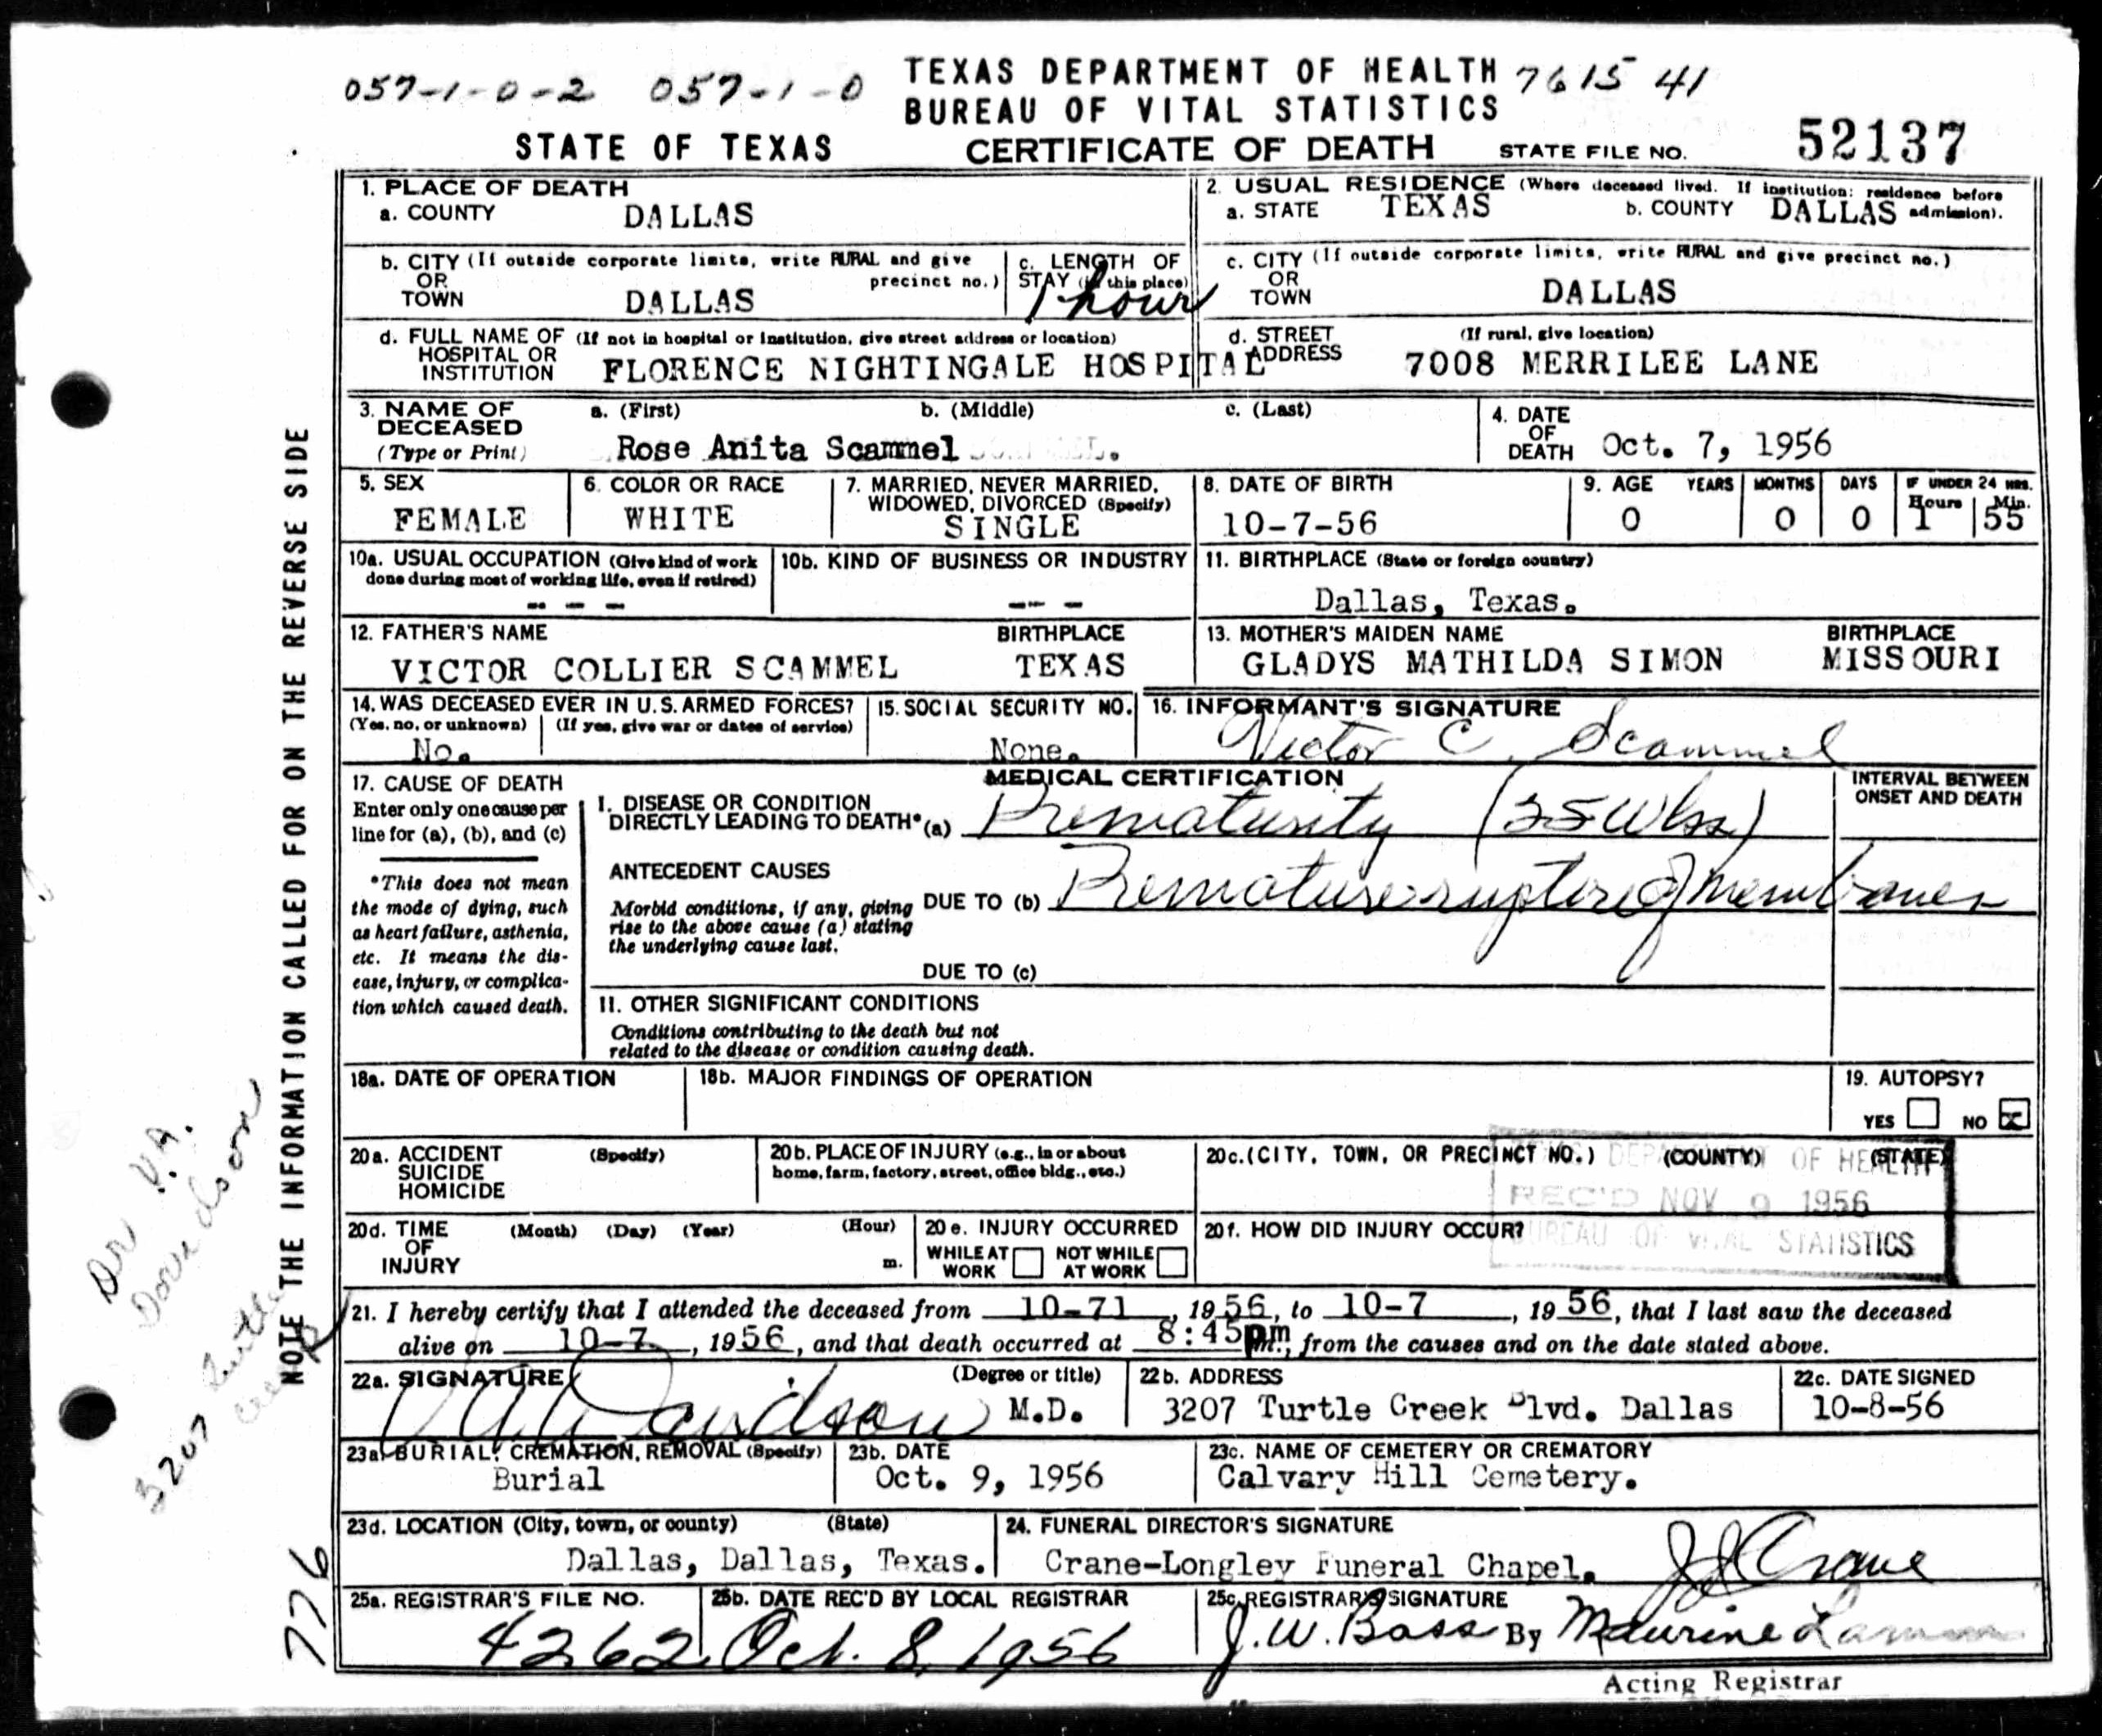 057-1-0-2 057-1-0
TEXAS DEPARTMENT OF HEALTH 7615 41
BUREAU OF VITAL STATISTICS
STATE OF TEXAS CERTIFICATE OF DEATH STATE FILE NO. 52137
1. PLACE OF DEATH
a. COUNTY DALLAS
2. USUAL RESIDENCE (Where deceased lived. If institution: residence before admission).
a. STATE TEXAS b. COUNTY DALLAS
b. CITY (If outside corporate limits, write RURAL and give precinct no.)
OR
TOWN DALLAS
c. LENGTH OF
STAY (in this place)
1 hour
c. CITY (If outside corporate limits, write RURAL and give precinct no.)
OR
TOWN DALLAS
d. FULL NAME OF (If not in hospital or institution, give street address or location)
HOSPITAL OR
INSTITUTION FLORENCE NIGHTINGALE HOSPITAL
d. STREET (If rural, give location)
ADDRESS 7008 MERRILEE LANE
3. NAME OF a. (First) b. (Middle) c. (Last)
DECEASED
(Type or Print) Rose Anita Scammel
4. DATE
OF
DEATH Oct. 7, 1956
5. SEX
FEMALE
6. COLOR OR RACE
WHITE
7. MARRIED, NEVER MARRIED,
WIDOWED, DIVORCED (Specify)
SINGLE
8. DATE OF BIRTH
10-7-56
9. AGE YEARS MONTHS DAYS IF UNDER 24 HRS.
Hours Min.
0 0 0 1 55
10a. USUAL OCCUPATION (Give kind of work
done during most of working life, even if retired)
- - -
10b. KIND OF BUSINESS OR INDUSTRY
-- -
11. BIRTHPLACE (State or foreign country)
Dallas, Texas.
12. FATHER'S NAME BIRTHPLACE
VICTOR COLLIER SCAMMEL TEXAS
13. MOTHER'S MAIDEN NAME BIRTHPLACE
GLADYS MATHILDA SIMON MISSOURI
14. WAS DECEASED EVER IN U.S. ARMED FORCES?
(Yes, no, or unknown) (If yes, give war or dates of service)
No.
15. SOCIAL SECURITY NO.
None.
16. INFORMANT'S SIGNATURE
Victor C. Scammel
17. CAUSE OF DEATH
Enter only one cause per
line for (a), (b), and (c)
*This does not mean
the mode of dying, such
as heart failure, asthenia,
etc. It means the dis-
ease, injury, or complica-
tion which caused death.
MEDICAL CERTIFICATION
INTERVAL BETWEEN
ONSET AND DEATH
I. DISEASE OR CONDITION
DIRECTLY LEADING TO DEATH* (a) Prematurity (25 Wks)
ANTECEDENT CAUSES
Morbid conditions, if any, giving
rise to the above cause (a) stating
the underlying cause last.
DUE TO (b) Premature rupture of membranes
DUE TO (c)
II. OTHER SIGNIFICANT CONDITIONS
Conditions contributing to the death but not
related to the disease or condition causing death.
18a. DATE OF OPERATION
18b. MAJOR FINDINGS OF OPERATION
19. AUTOPSY?
YES NO X
20a. ACCIDENT (Specify)
SUICIDE
HOMICIDE
20b. PLACE OF INJURY (e.g., in or about
home, farm, factory, street, office bldg., etc.)
20c. (CITY, TOWN, OR PRECINCT NO.) (COUNTY) (STATE)
DEPARTMENT OF HEALTH
REC'D NOV 9 1956
BUREAU OF VITAL STATISTICS
20d. TIME (Month) (Day) (Year) (Hour)
OF
INJURY m.
20e. INJURY OCCURRED
WHILE AT WORK NOT WHILE AT WORK
20f. HOW DID INJURY OCCUR?
21. I hereby certify that I attended the deceased from 10-71, 1956, to 10-7, 1956, that I last saw the deceased
alive on 10-7, 1956, and that death occurred at 8:45 pm m., from the causes and on the date stated above.
22a. SIGNATURE (Degree or title)
V A Davidson M.D.
22b. ADDRESS
3207 Turtle Creek Blvd. Dallas
22c. DATE SIGNED
10-8-56
23a. BURIAL, CREMATION, REMOVAL (Specify)
Burial
23b. DATE
Oct. 9, 1956
23c. NAME OF CEMETERY OR CREMATORY
Calvary Hill Cemetery.
23d. LOCATION (City, town, or county) (State)
Dallas, Dallas, Texas.
24. FUNERAL DIRECTOR'S SIGNATURE
Crane-Longley Funeral Chapel. J J Crane
25a. REGISTRAR'S FILE NO.
4262
25b. DATE REC'D BY LOCAL REGISTRAR
Oct. 8, 1956
25c. REGISTRAR'S SIGNATURE
J. W. Bass By Maurine
Acting Registrar
NOTE THE INFORMATION CALLED FOR ON THE REVERSE SIDE
Dr V.A.
Davidson
3207 Turtle
776